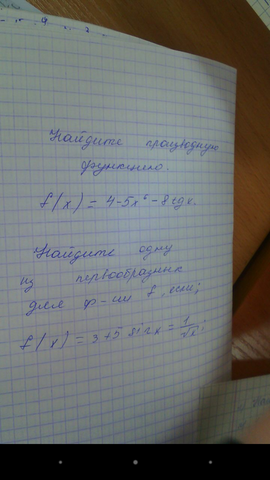 Найдите производную
функцию
f(x) = 4-5x⁶ - 8tgx.
Найдите одну
из первообразных
для ф-ии f, если;
f(x) = 3+5 sin x = 1/√x;